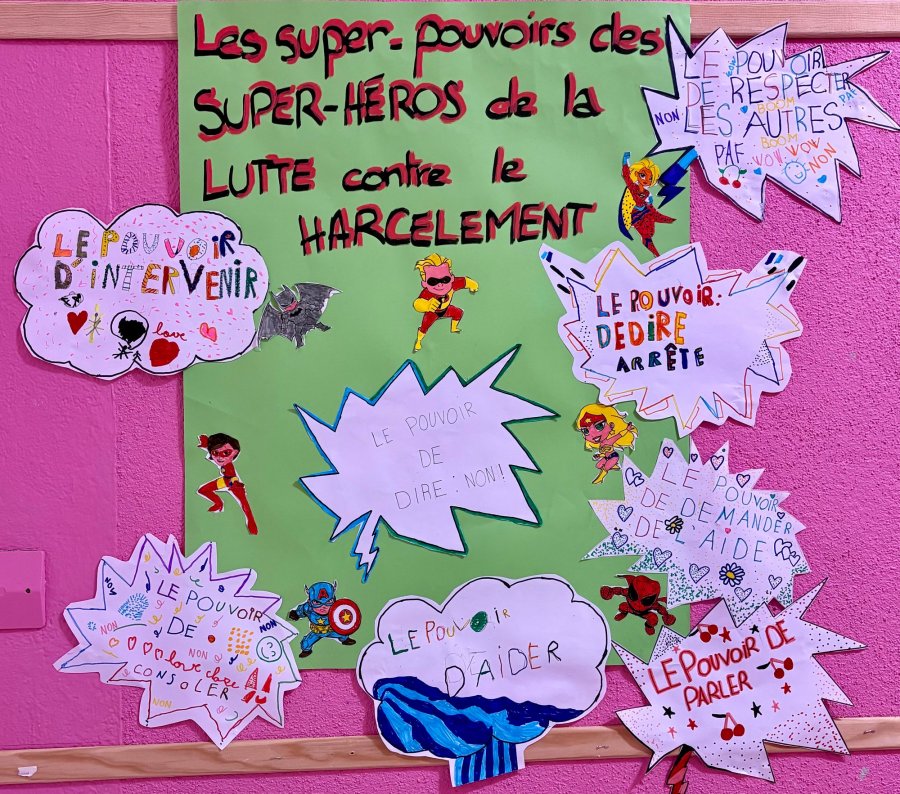 Les super-pouvoirs des
SUPER-HÉROS de la
LUTTE contre le
HARCELEMENT
LE POUVOIR
DE RESPECTER
LES AUTRES
NON
BOOM
PAF
BOOM
PAF
WOW WOW
NON
LE POUVOIR
D'INTERVENIR
love
LE POUVOIR:
DE DIRE
ARRÊTE
LE POUVOIR
DE
DIRE : NON!
LE POUVOIR
DE DEMANDER
DE L'AIDE
LE POUVOIR
DE
NON
NON
NON
love
CONSOLER
NON
LE POUVOIR
D'AIDER
LE POUVOIR DE
PARLER